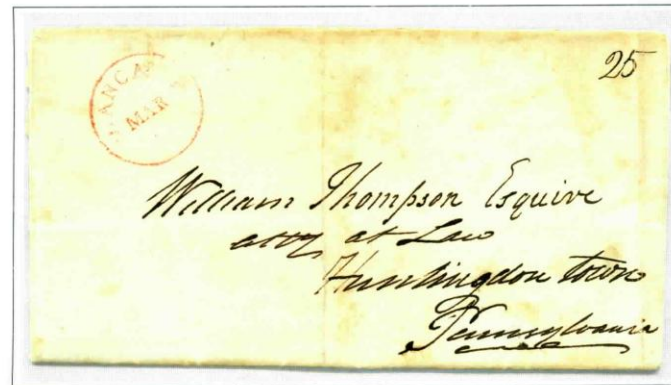 MAR
25
William Thompson Esquire
atty at Law
Huntingdon town
Pennsylvania